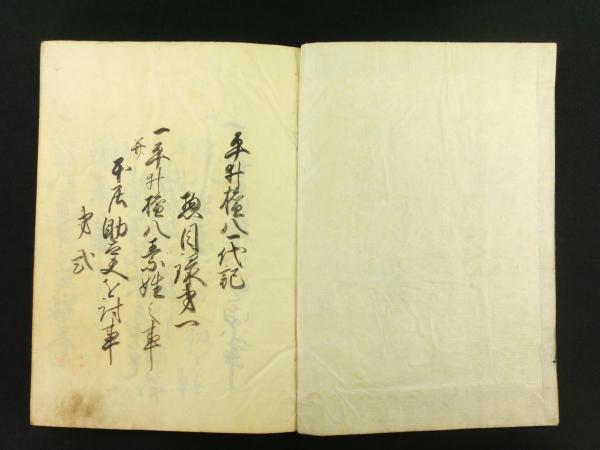 平井権八一代記
惣目録第一
一平井権八素姓之事
并本庄助太夫を討事
第弐